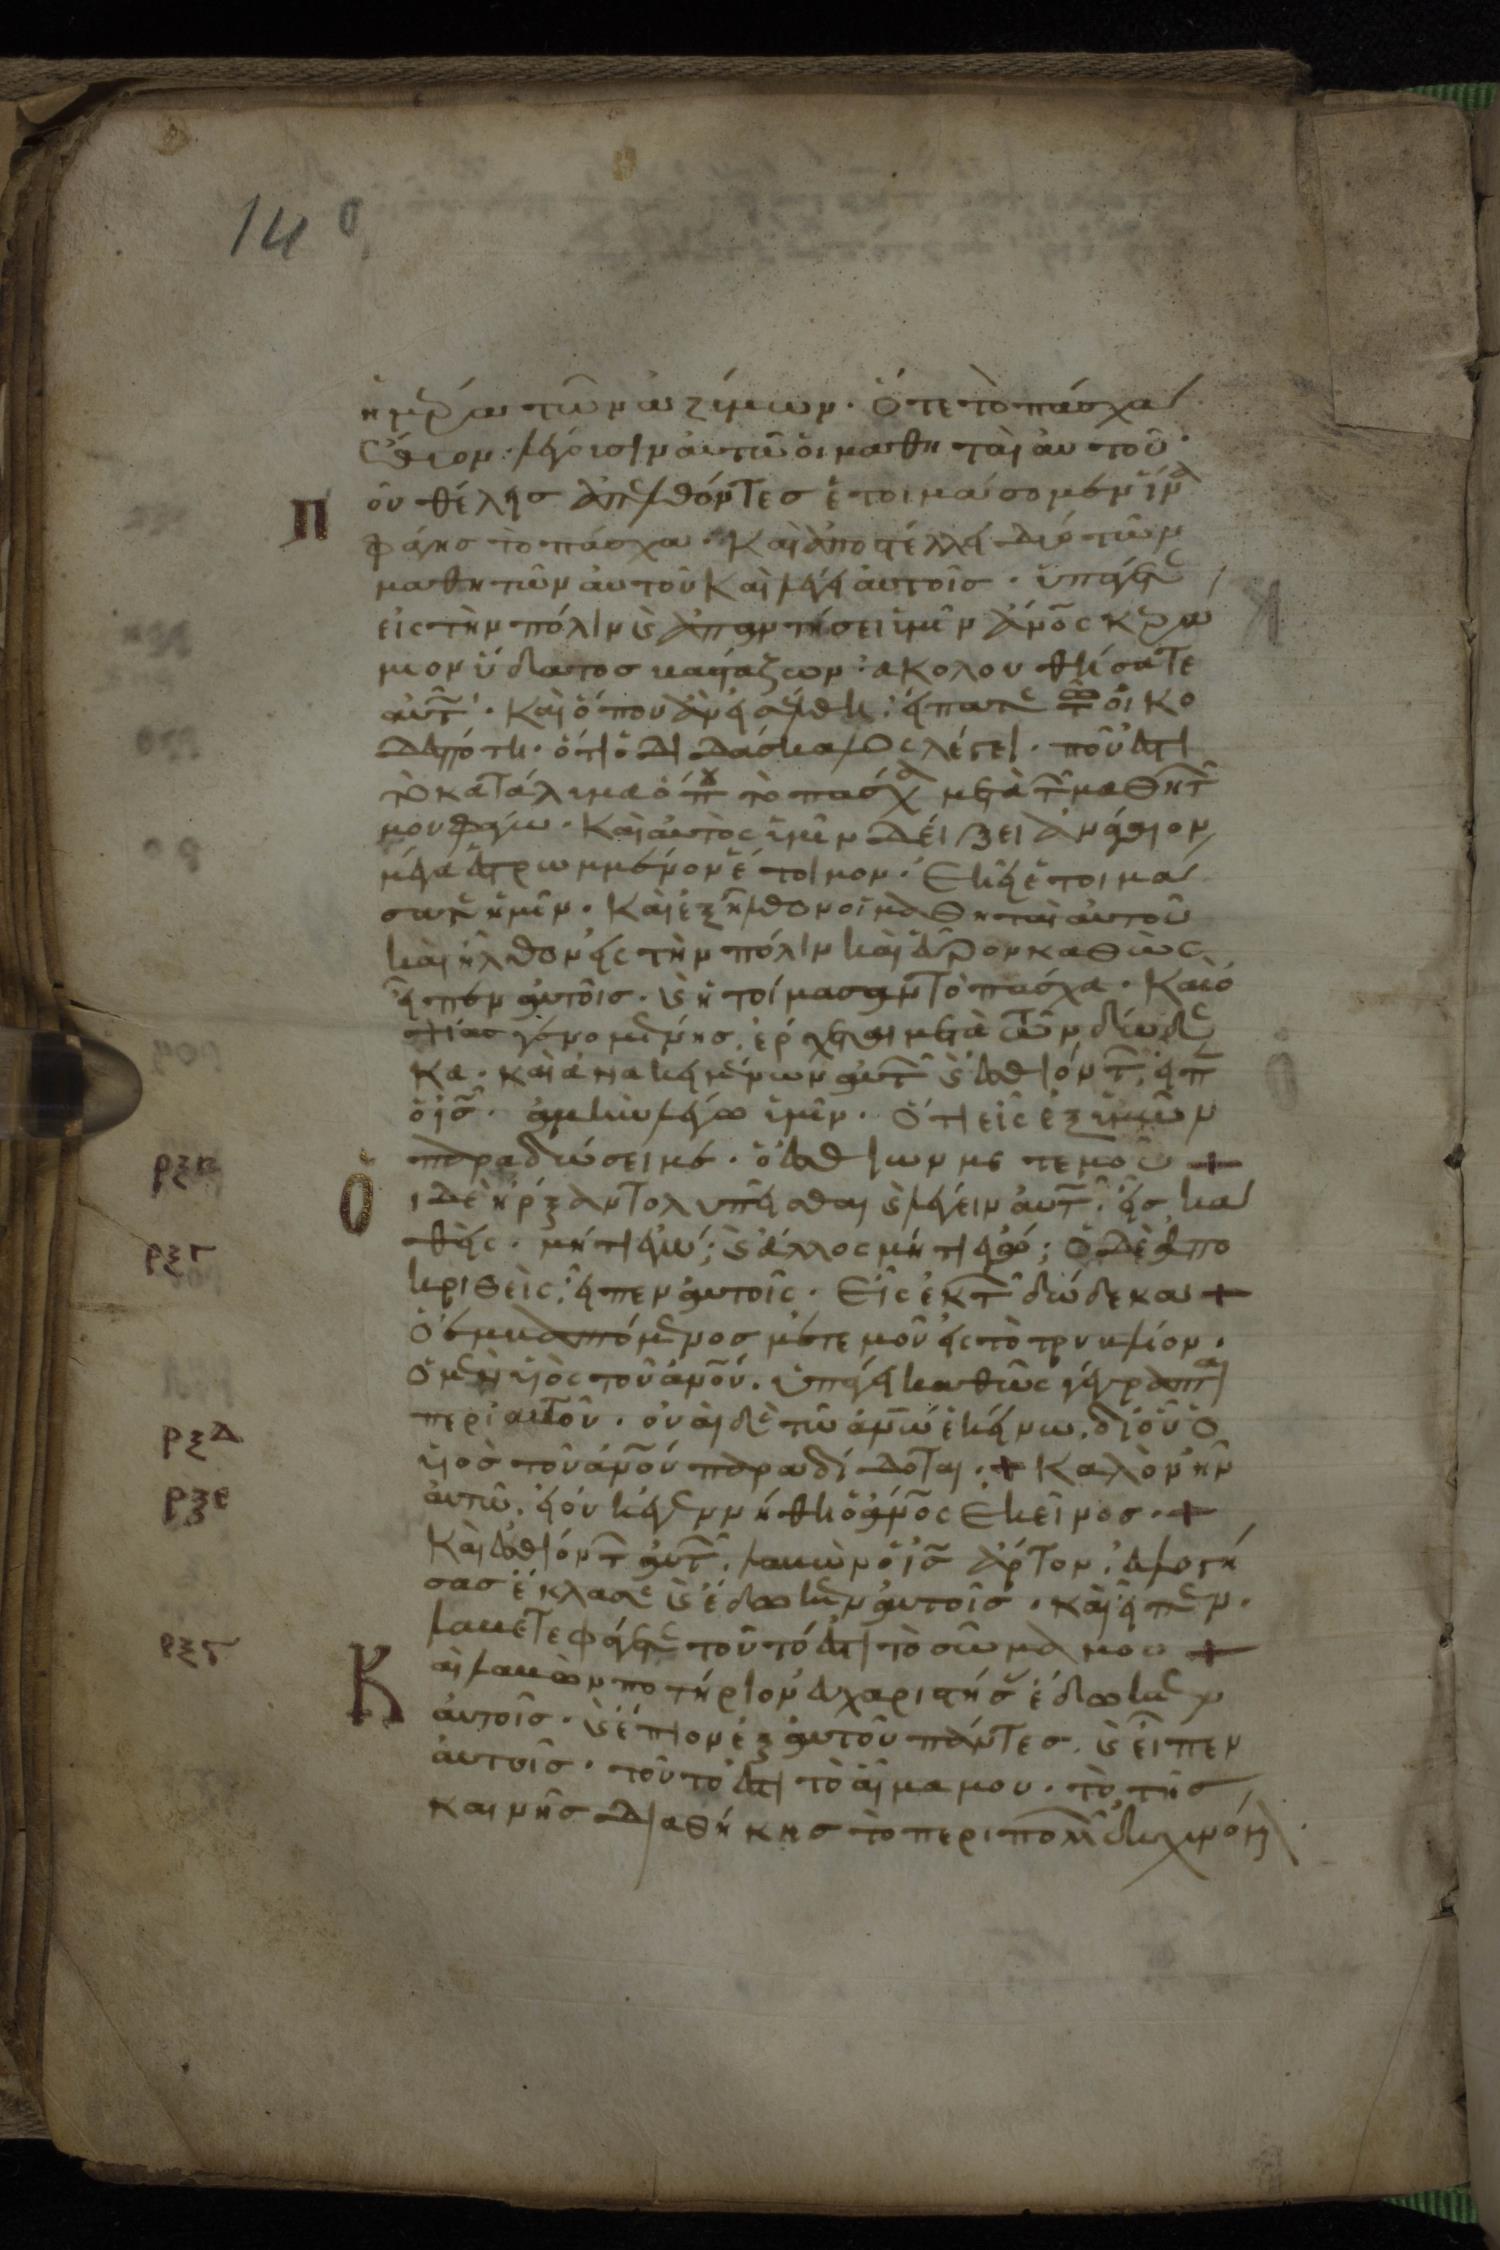 140
ἡμέρα τῶν ἀζύμων· ὅτε τὸ πάσχα
ἔθυον· λέγουσιν αὐτῶ οἱ μαθηταὶ αὐτοῦ·
Ποῦ θέλης ἀπελθόντες ἑτοιμάσομεν ἵνα
φάγης τὸ πάσχα· Καὶ ἀποστέλλει δύο τῶν
μαθητῶν αὐτοῦ καὶ λέγει αὐτοῖς· ὑπάγετε
εἰς τὴν πόλιν ϗ ἀπαντήσει ὑμῖν ἄνος κερά
μιον ὕδατος βαστάζων· ἀκολουθήσατε
αὐτῶ· Καὶ ὅπου ἂν εἰσέλθη, εἴπατε τῶ οἰκο
δεσπότη· ὅτι ὁ διδάσκαλος λέγει· ποῦ ἐστι
τὸ κατάλυμα ὅπου τὸ πάσχα μετὰ τῶν μαθητῶν
μου φάγω· Καὶ αὐτὸς ὑμῖν δείξει ἀνάγαιον
μέγα ἐστρωμμένον ἕτοιμον· Ἐκεῖ ἑτοιμά
σατε ἡμῖν· Καὶ ἐξῆλθον οἱ μαθηταὶ αὐτοῦ
καὶ ἦλθον εἰς τὴν πόλιν καὶ εὗρον καθὼς
εἶπεν αὐτοῖς· ϗ ἡτοίμασαν τὸ πάσχα· Καὶ ὀ
ψίας γενομένης, ἔρχεται μετὰ τῶν δώδε
κα· καὶ ἀνακειμένων αὐτῶν ϗ ἐσθιόντων, εἶπεν
ὁ ις· ἀμὴν λέγω ὑμῖν· ὅτι εἷς ἐξ ὑμῶν
παραδώσει με· ὁ ἐσθίων μετ' ἐμοῦ +
ρξβ
Οἱ δὲ ἤρξαντο λυπεῖσθαι ϗ λέγειν αὐτῶ, εἷς κα
θεῖς· μήτι ἐγώ; ϗ ἄλλος μήτι ἐγώ; ὁ δὲ ἀπο
ρξγ
κριθεὶς, εἶπεν αὐτοῖς· Εἷς ἐκ τῶν δώδεκα +
ὁ ἐμβαπτόμενος μετ' ἐμοῦ εἰς τὸ τρυβλίον·
ὁ μὲν υἱὸς τοῦ ἀνου, ὑπάγει καθὼς γέγραπται
περὶ αὐτοῦ· οὐαὶ δὲ τῶ ἀνω ἐκείνω, δι' οὗ ὁ
ρξδ
υἱὸς τοῦ ἀνου παραδίδοται· + Καλὸν ἦν
ρξε
αὐτῶ, εἰ οὐκ ἐγεννήθη ὁ ἄνος ἐκεῖνος· +
Καὶ ἐσθιόντων αὐτῶν, λαβὼν ὁ ις ἄρτον, εὐλογή
σας ἔκλασε ϗ ἔδωκεν αὐτοῖς· καὶ εἶπεν·
λάβετε φάγετε τοῦτό ἐστι τὸ σῶμά μου +
ρξϛ
Καὶ λαβὼν ποτήριον εὐχαριστήσας ἔδωκεν
αὐτοῖς· ϗ ἔπιον ἐξ αὐτοῦ πάντες, ϗ εἶπεν
αὐτοῖς· τοῦτό ἐστι τὸ αἷμα μου· τὸ τῆς
καινῆς διαθήκης τὸ περὶ πολλῶν ἐκχυνόμενον